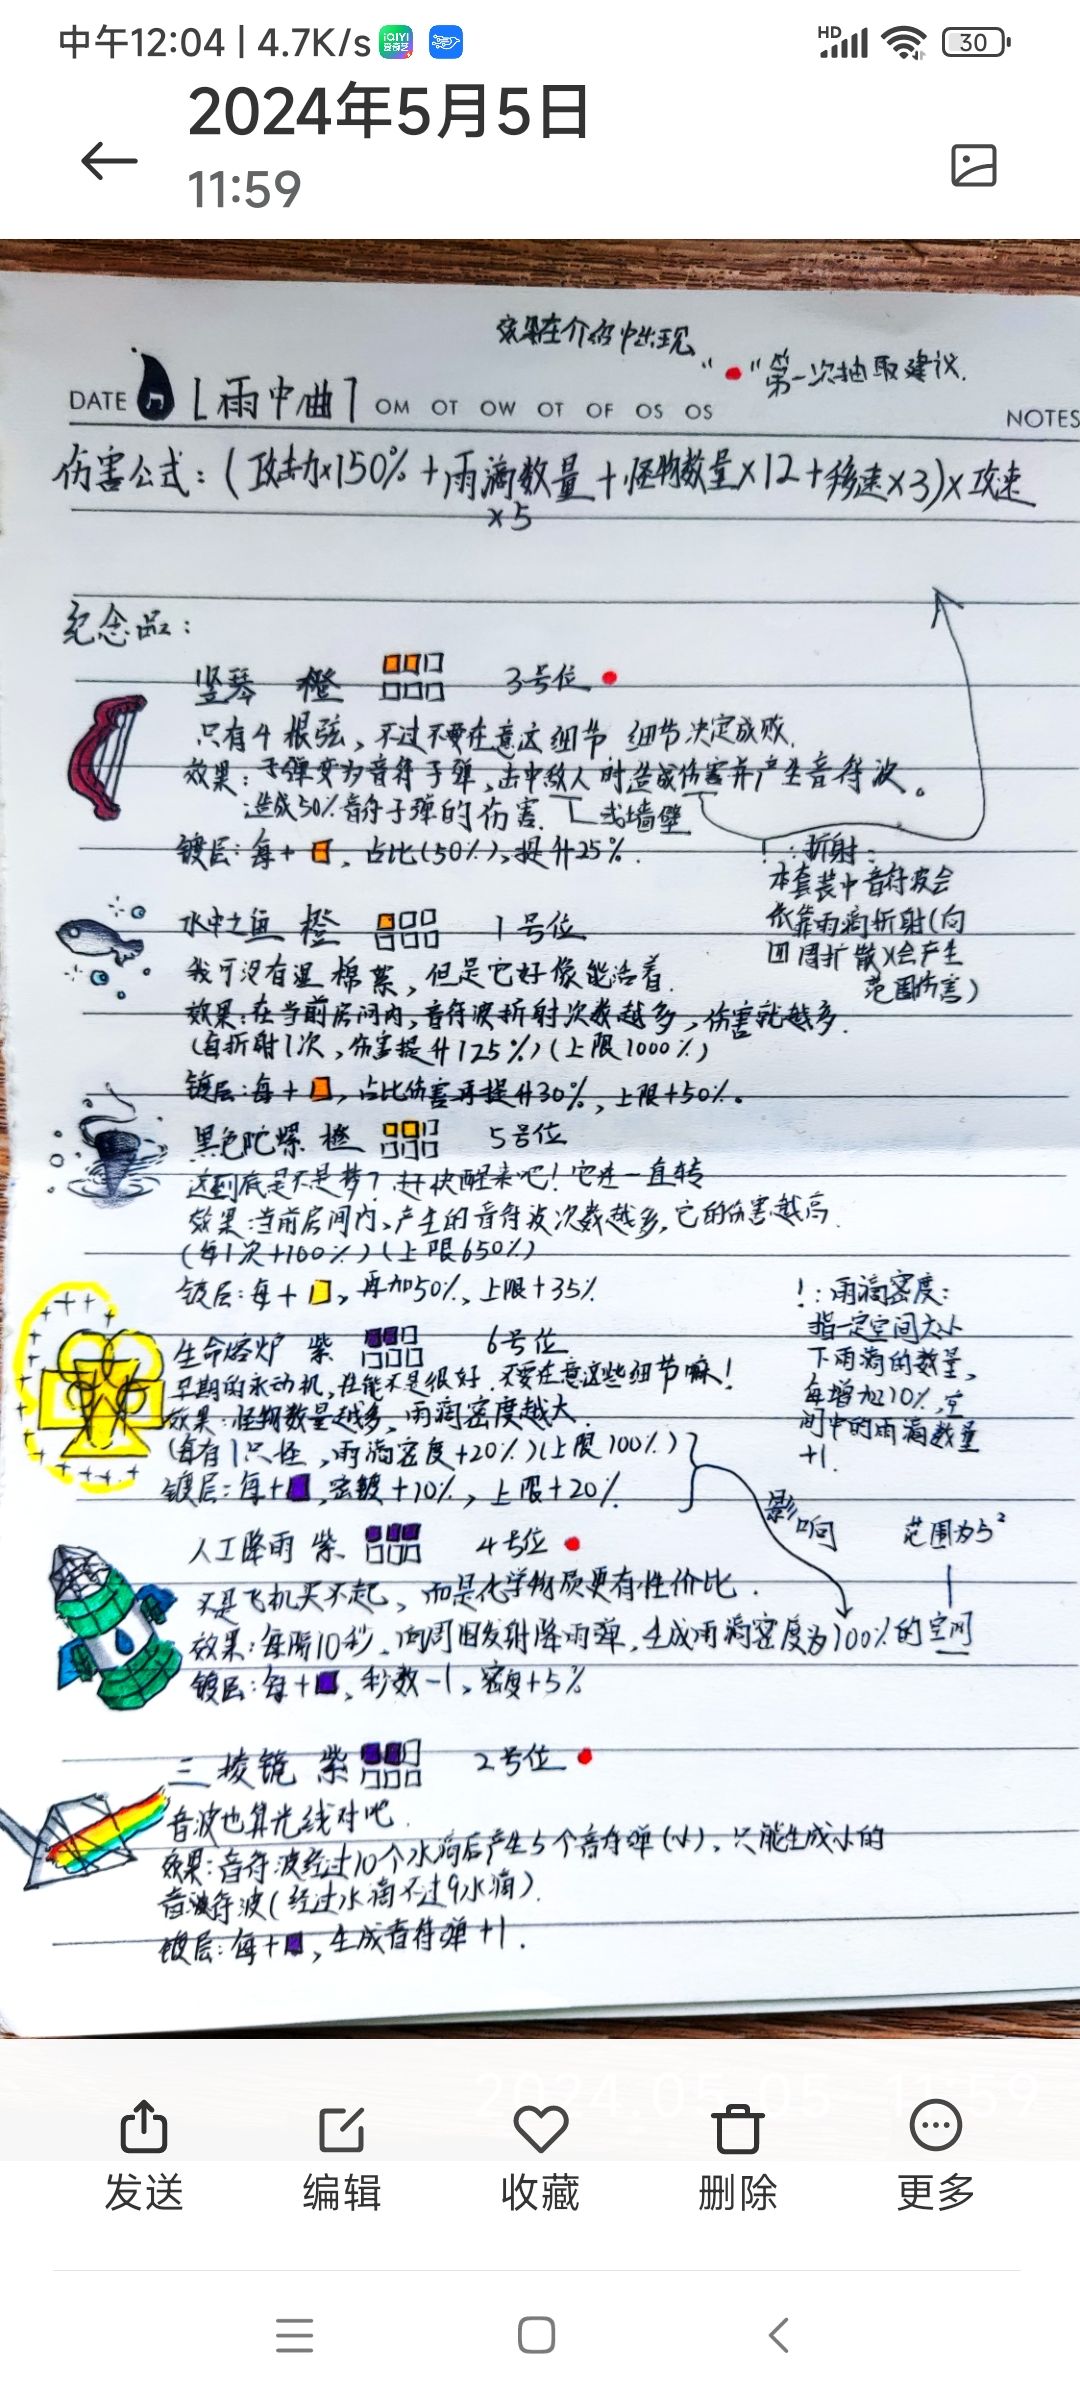 中午12:04 | 4.7K/s
HD
30
2024年5月5日
11:59
效果在介绍中出现
“●”第一次抽取建议.
DATE [雨中曲] OM OT OW OT OF OS OS
NOTES
伤害公式: (攻击力×150% + 雨滴数量 + 怪物数量×12 + 移速×3)× 攻速
×5
纪念品:
竖琴 橙 3号位
只有4根弦, 不过不要在意这细节 细节决定成败.
效果: 子弹变为音符子弹, 击中敌人时造成伤害并产生音符波。
造成50%音符子弹的伤害. 或墙壁
镀层: 每+ , 占比(50%), 提升25%.
! : 折射:
本套装中音符波会
依靠雨滴折射(向
四周扩散)(会产生
范围伤害)
水中之鱼 橙 1号位
我可没有湿棉絮, 但是它好像能活着.
效果: 在当前房间内, 音符波折射次数越多, 伤害就越多.
(每折射1次, 伤害提升125%)(上限1000%)
镀层: 每+ , 占比伤害再提升30%, 上限+50%。
黑色陀螺 橙 5号位
这到底是不是梦? 赶快醒来吧! 它在一直转
效果: 当前房间内, 产生的音符波次数越多, 它的伤害越高.
(每1次+100%)(上限650%)
镀层: 每+ , 再加50%, 上限+35%
! : 雨滴密度:
指一定空间大小
下雨滴的数量,
每增加10%, 空
间中的雨滴数量
+1.
生命熔炉 紫 6号位
早期的永动机, 性能不是很好. 不要在意这些细节嘛!
效果: 怪物数量越多, 雨滴密度越大.
(每有1只怪, 雨滴密度+20%)(上限100%)
镀层: 每+ , 密度+10%, 上限+20%
影响
范围为5²
人工降雨 紫 4号位
不是飞机买不起, 而是化学物质更有性价比.
效果: 每隔10秒, 向周围发射降雨弹, 生成雨滴密度为100%的空间
镀层: 每+ , 秒数-1, 密度+5%
三棱镜 紫 2号位
音波也算光线对吧.
效果: 音符波经过10个水滴后产生5个音符弹(小), 只能生成小的
音符波(经过水滴不过9水滴).
镀层: 每+ , 生成音符弹+1.
2024.05.05 11:59
发送 编辑 收藏 删除 更多